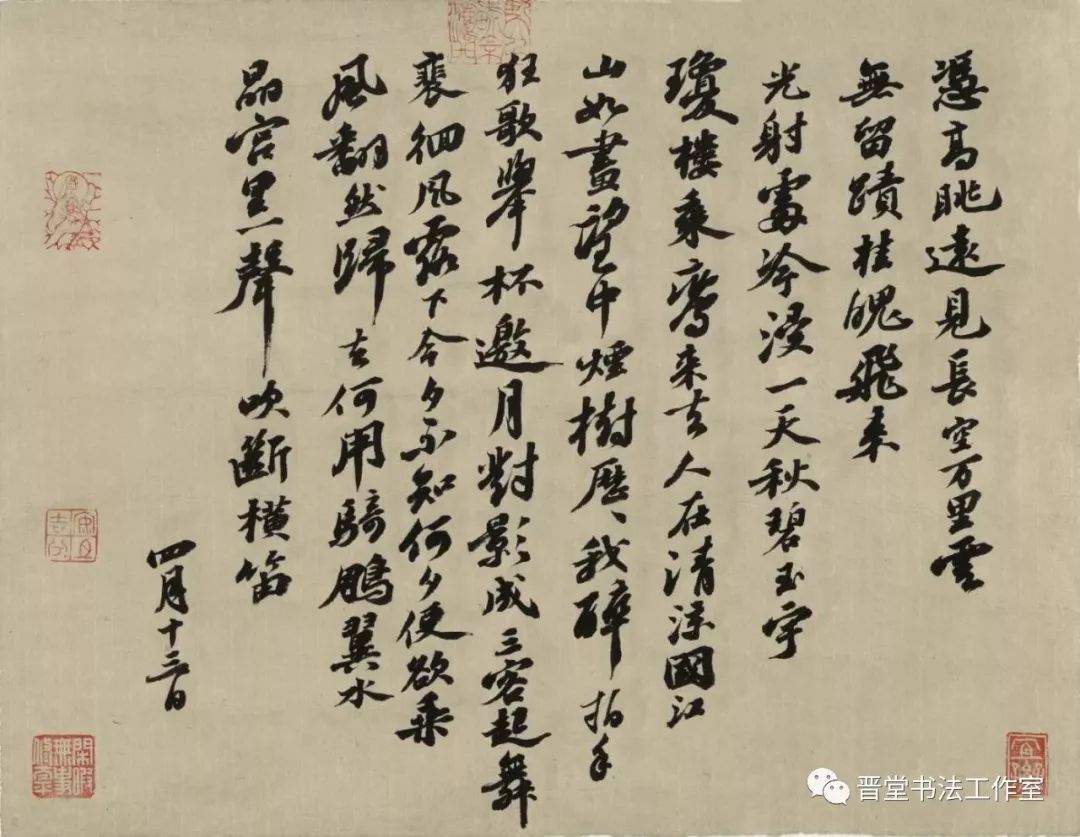 憑高眺遠見長空万里雲
無留蹟桂魄飛来
光射處冷浸一天秋碧玉宇
瓊樓乘鸞来去人在清涼國江
山如畫望中煙樹歷、我醉拍手
狂歌舉杯邀月對影成三客起舞
裵徊風露下今夕不知何夕便欲乘
風翻然歸去何用騎鵬翼水
晶宮里一聲吹斷橫笛
四月十三日
晋堂书法工作室